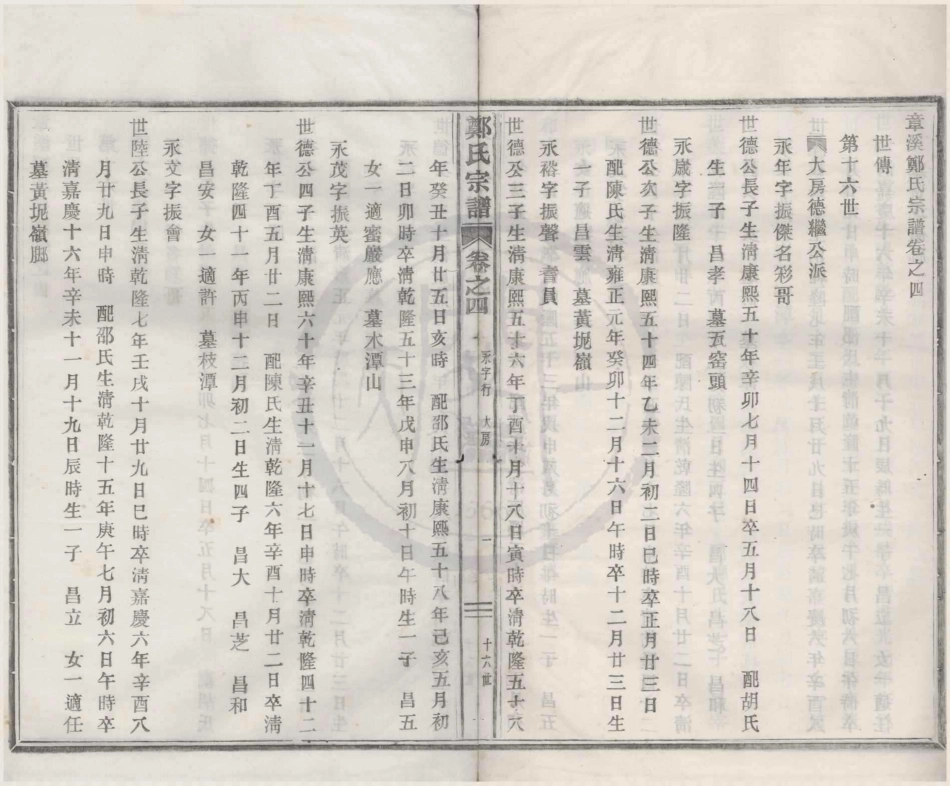 章溪鄭氏宗譜卷之四
世傳
第十六世
大房德繼公派
永年字振傑名彩哥
世德公長子生淸康熙五十年辛卯七月十四日卒五月十八日 配胡氏
生一子 昌孝 墓瓦窑頭
永歲字振隆
世德公次子生淸康熙五十四年乙未二月初二日巳時卒正月廿三日
配陳氏生淸雍正元年癸卯十二月十六日午時卒十二月廿三日生
一子 昌雲 墓黃坭嶺山
永裕字振聲 耆員
世德公三子生淸康熙五十六年丁酉十月十八日寅時卒淸乾隆五十八
鄭氏宗譜 卷之四 永字行 大房 一 十六世
年癸丑十月廿五日亥時 配邵氏生淸康熙五十八年己亥五月初
二日卯時卒淸乾隆五十三年戊申八月初十日午時生一子 昌五
女一適蜜嚴應 墓木潭山
永茂字振英
世德公四子生淸康熙六十年辛丑十一月十七日申時卒淸乾隆四十二
年丁酉五月廿二日 配陳氏生淸乾隆六年辛酉十月廿二日卒淸
乾隆四十一年丙申十二月初二日生四子 昌大 昌芝 昌和
昌安 女一適許 墓枝潭
永文字振會
世陸公長子生淸乾隆七年壬戌十月廿九日巳時卒淸嘉慶六年辛酉八
月廿九日申時 配邵氏生淸乾隆十五年庚午七月初六日午時卒
淸嘉慶十六年辛未十一月十九日辰時生一子 昌立 女一適任
墓黃坭嶺脚